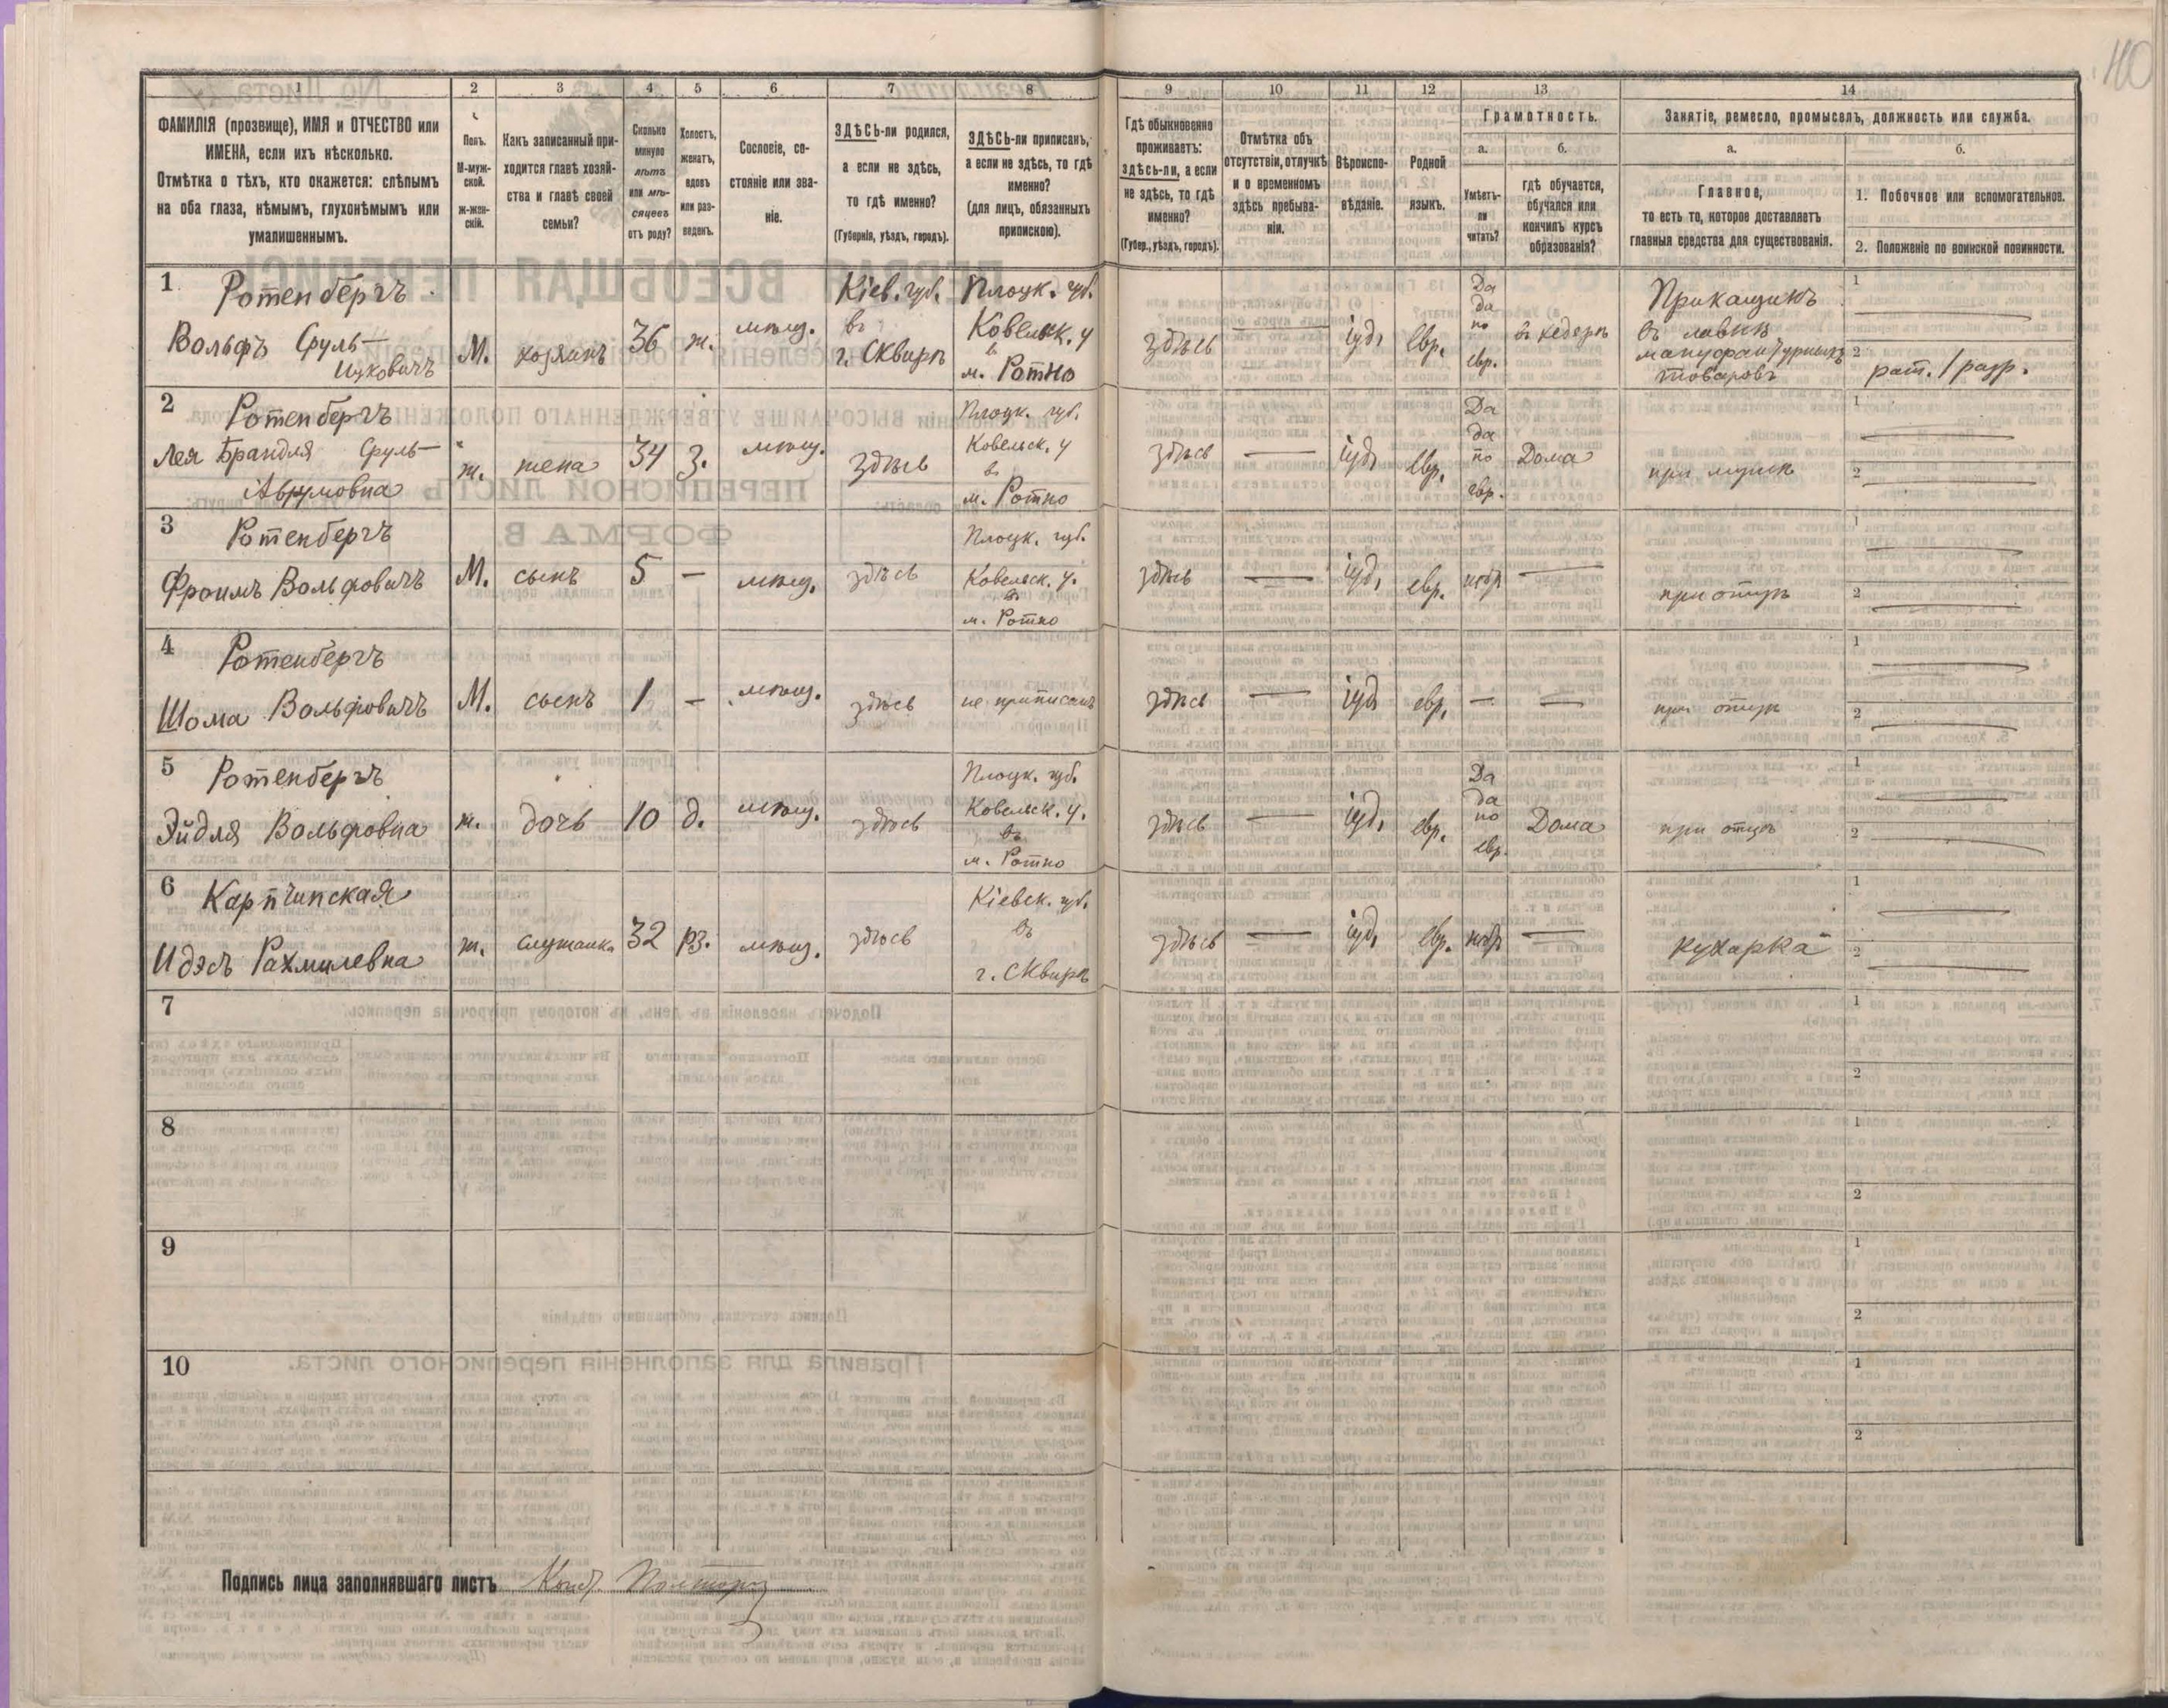 40
1 2 3 4 5 6 7 8 9 10 11 12 13 14
ФАМИЛІЯ (прозвище), ИМЯ и ОТЧЕСТВО или
ИМЕНА, если ихъ нѣсколько.
Отмѣтка о тѣхъ, кто окажется: слѣпымъ
на оба глаза, нѣмымъ, глухонѣмымъ или
умалишеннымъ.
Полъ.
М-муж-
ской.
ж-жен-
скій.
Какъ записанный при-
ходится главѣ хозяй-
ства и главѣ своей
семьи?
Сколько
минуло
лѣтъ
или мѣ-
сяцевъ
отъ роду?
Холостъ,
женатъ,
вдовъ
или раз-
веденъ.
Сословіе, со-
стояніе или зва-
ніе.
ЗДѢСЬ-ли родился,
а если не здѣсь,
то гдѣ именно?
(Губернія, уѣздъ, городъ).
ЗДѢСЬ-ли приписанъ,
а если не здѣсь, то гдѣ
именно?
(для лицъ, обязанныхъ
припискою).
Гдѣ обыкновенно
проживаетъ:
здѣсь-ли, а если
не здѣсь, то гдѣ
именно?
(Губер., уѣздъ, городъ).
Отмѣтка объ
отсутствіи, отлучкѣ
и о временномъ
здѣсь пребыва-
ніи.
Вѣроиспо-
вѣданіе.
Родной
языкъ.
Грамотность.
а.
Умѣетъ-
ли
читать?
б.
гдѣ обучается,
обучался или
кончилъ курсъ
образованія?
Занятіе, ремесло, промыселъ, должность или служба.
а.
Главное,
то есть то, которое доставляетъ
главныя средства для существованія.
б.
1. Побочное или вспомогательное.
2. Положеніе по воинской повинности.
1 Ротенбергъ
Вольфъ Сруль-
Ицковичъ
М. хозяинъ 36 ж. мѣщ.
Кіев. губ.
въ
г. Сквирѣ
Плоцк. губ.
Ковельск. у
в
м. Ротно
здѣсь — іуд. евр.
Да
да
по
евр.
въ хедерѣ
Прикащикъ
въ лавкѣ
мануфактурныхъ
товаровъ
1
2 рат. 1 разр.
2 Ротенбергъ
Лея Брандля Сруль-
Аврумовна
ж. жена 34 з. мѣщ. здѣсь
Плоцк. губ.
Ковельск. у
в
м. Ротно
здѣсь — іуд. евр.
Да
да
по
евр.
Дома
при мужѣ
1 —
2 —
3 Ротенбергъ
Фроимъ Вольфовичъ
М. сынъ 5 — мѣщ. здѣсь
Плоцк. губ.
Ковельск. у.
в
м. Ротно
здѣсь — іуд. евр. —
при отцѣ
1 —
2 —
4 Ротенбергъ
Шома Вольфовичъ
М. сынъ 1 — мѣщ. здѣсь не приписанъ
здѣсь — іуд. евр. — —
при отцѣ
1 —
2 —
5 Ротенбергъ
Эйдля Вольфовна
ж. дочь 10 д. мѣщ. здѣсь
Плоцк. губ.
Ковельск. у.
въ
м. Ротно
здѣсь — іуд. евр.
Да
да
по
евр.
Дома
при отцѣ
1 —
2 —
6
Идэсъ Рахмилевна
ж. служанка 32 рз. мѣщ. здѣсь
Кіевск. губ.
въ
г. Сквирѣ
здѣсь — іуд. евр. —
кухарка
1 —
2 —
7
1
2
8
1
2
9
1
2
10
1
2
Подпись лица заполнявшаго листъ